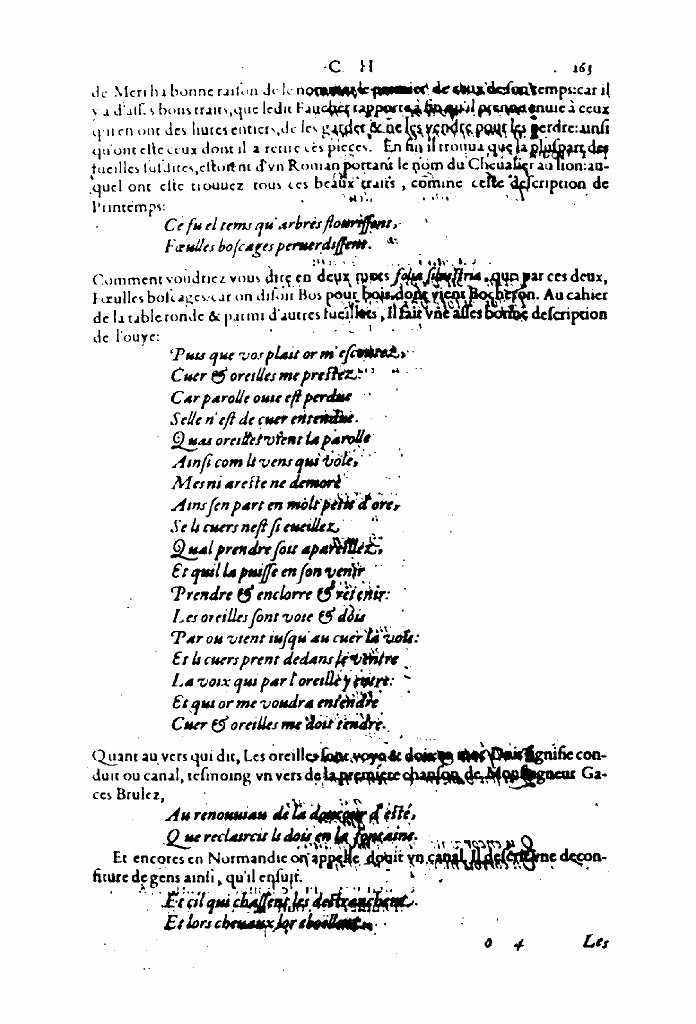 C H 163
de Meri ha bonne raison de le nommer le premier de ceux de son temps: car il
y a d'asses bons traits, que ledit Fauchet rapporte à fin qu'il prenne enuie à ceux
qui en ont des liures entiers, de les garder & ne les vendre pour les perdre: ainsi
qu'ont este ceux dont il a retire ces pieces. En fin il trouua que la pluspart des
fueilles susdites, estoient d'vn Roman portant le nom du Cheualier au lion: au-
quel ont este trouuez tous ces beaux traits, comme ceste description de
Printemps:
Ce fu el tems qu'arbres flourissent,
Fœulles boscages peruerdissent.
Comment voudriez vous dire en deux mots folia siluestria, que par ces deux,
Fœulles boscages: car on disoit Bos pour bois, dont vient Bocheron. Au cahier
de la table ronde & parmi d'autres fueillets, il fait vne asses bonne description
de l'ouye:
Puis que vos plait or m'escoutez,
Cuer & oreilles me prestez.
Car parolle ouie est perdue
Selle n'est de cuer entendue.
Quas oreilles vient la parolle
Ainsi com li vens qui vole,
Mes ni areste ne demore
Ains sen part en molt petit d'ore,
Se li cuers nest si eueillez
Qual prendre soit apareillez,
Et quil la puisse en son venir
Prendre & enclorre & retenir:
Les oreilles sont voie & dois
Par ou vient iusqu'au cuer la vois:
Et li cuers prent dedans le ventre
La voix qui par l'oreille y entre.
Et qui or me voudra entendre
Cuer & oreilles me doit tendre.
Quant au vers qui dit, Les oreilles sont voye & dois: ce mot Dois signifie con-
duit ou canal, tesmoing vn vers de la premiere chanson de Monseigneur Ga-
ces Brulez,
Au renouuiau de la douçour d'esté,
Que reclaircit li dois en la fontaine.
Et encores en Normandie on appelle douit vn canal. Il descrit vne decon-
fiture de gens ainsi, qu'il ensuit.
Et cil qui chassent les destranchent
Et lors cheuaux lor
o 4 Les